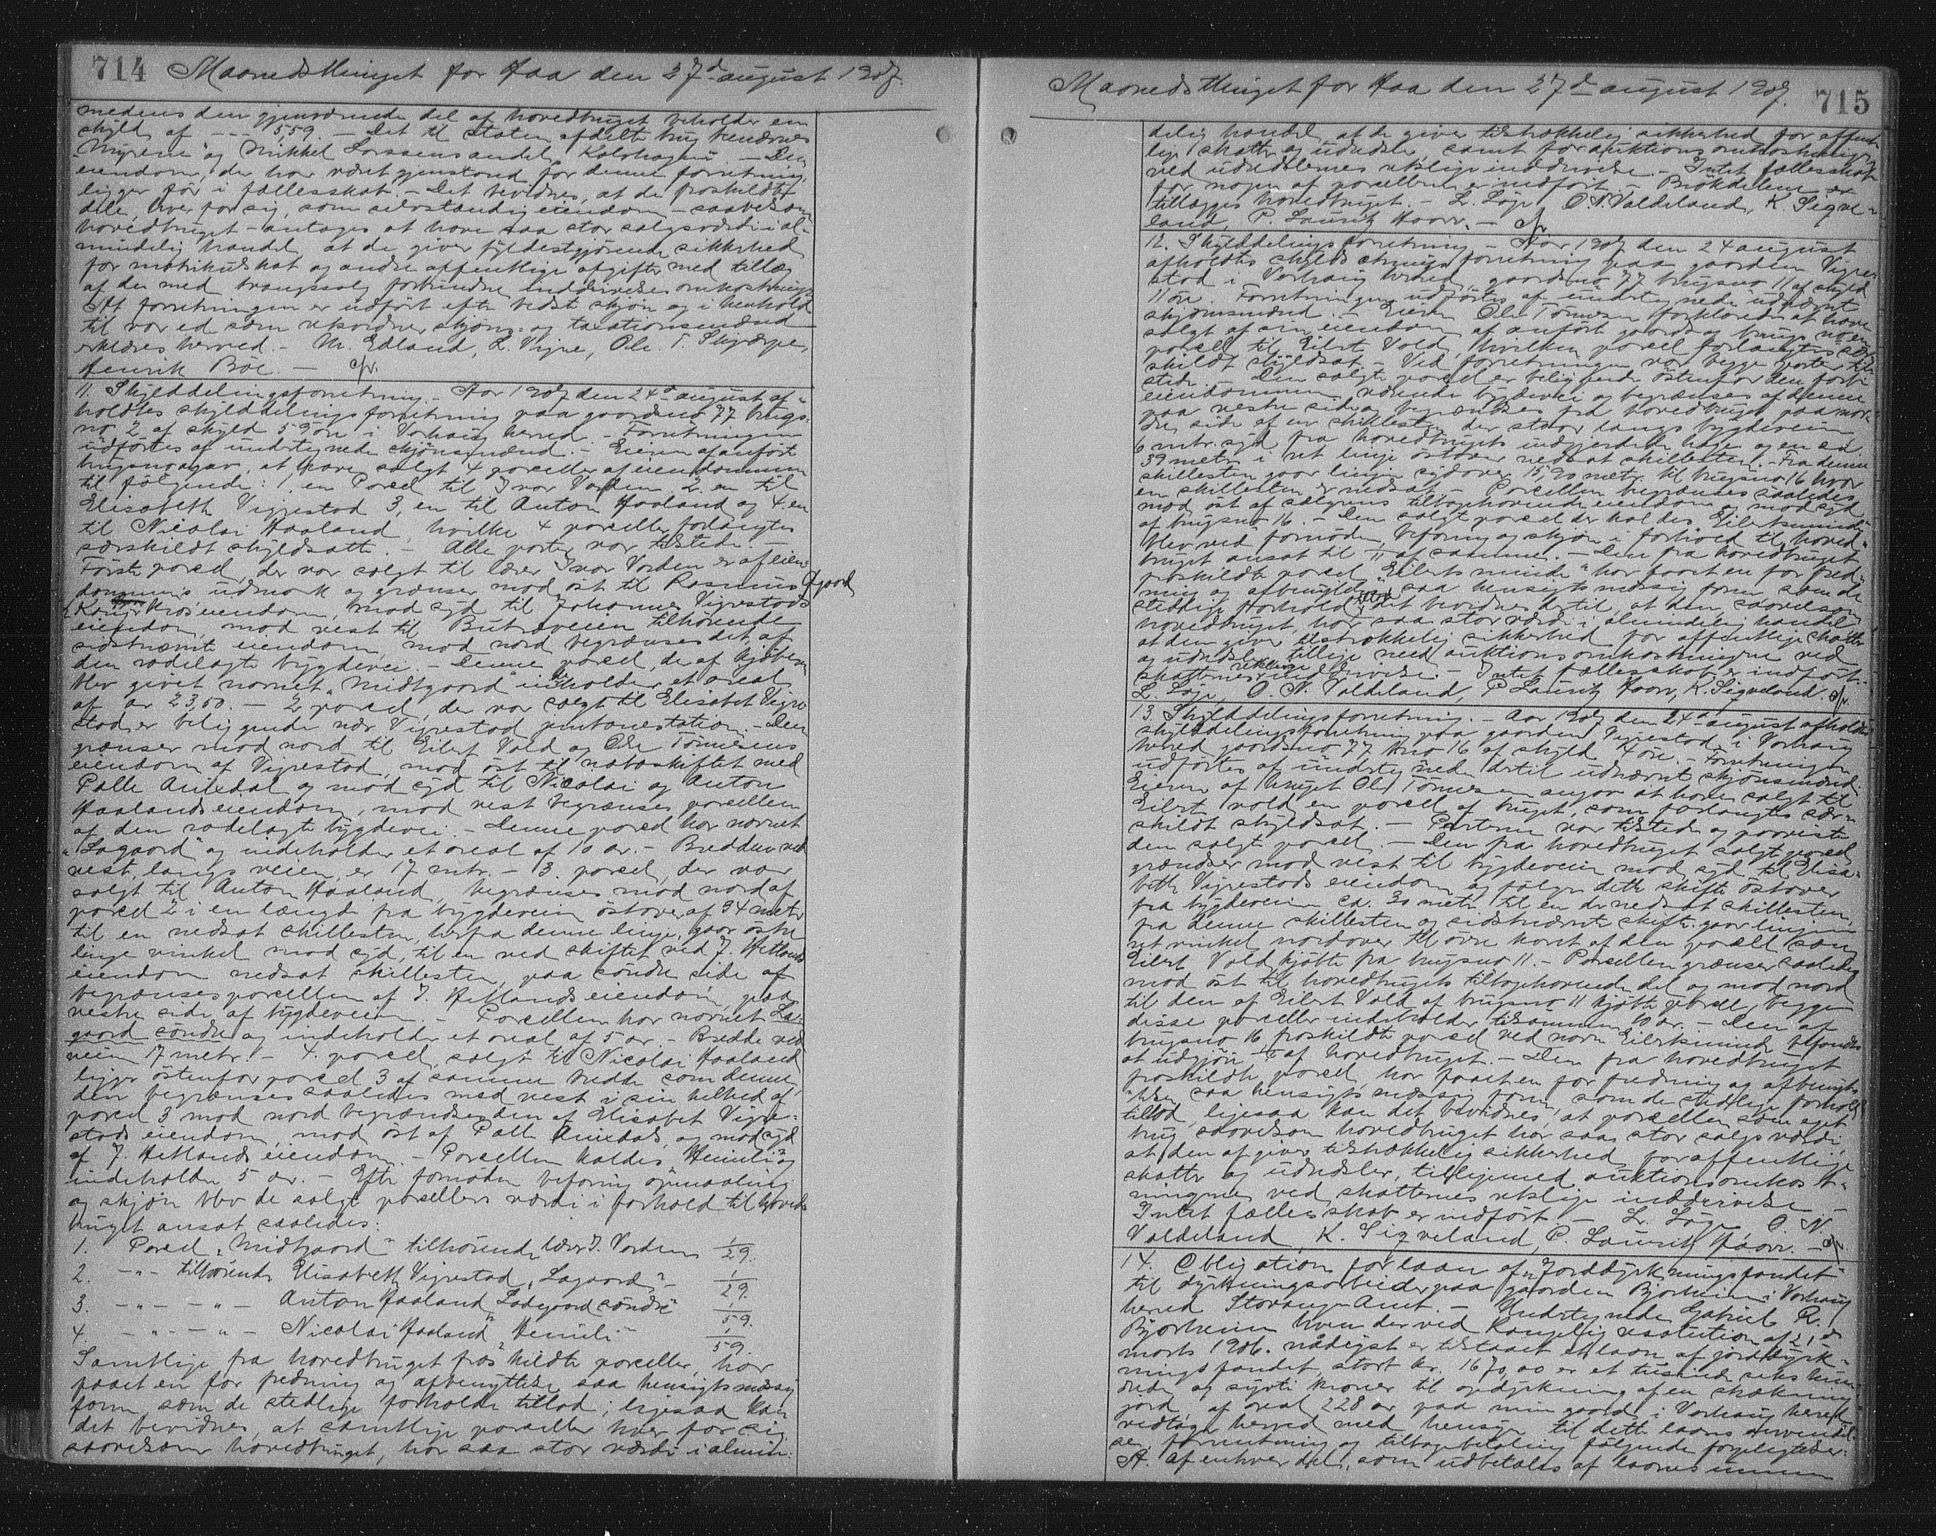 714 Maanedsthinget for Haa den 27d august 1907.
medens den gjenværende del af hovedbruget beholder en
skyld af --- 559. – Det til Staten afdelte brug benævnes
"Myrene" og Mikkel Larssens andel "Kalvhagen". – Den
eiendom, der har været gjenstand for denne forretning,
ligger før i fællesskab. – Det bevidnes, at de fraskildte
dele, hver for sig, som selvstændig eiendom – saavelsom
hovedbruget – antages at have saa stor salgsværdi i al-
mindelig handel, at de giver fyldestgjørende sikkerhed
for matrikulskat og andre offentlige afgifter med tillæg
af de med tvangssalg forbundne inddrivelsesomkostninger
At forretningen er udført efter bedste skjøn og i henhold
til vor ed som edsvorne skjøns- og taxationsmænd
erklæres herved. – M. Edland, L. Vigre, Ole T. Skjærpe,
Henrik Böe. –
11. Skylddelingsforretning. – Aar 1907 den 24d august af-
holdtes skylddelingsforretning paa gaardsno 77 brugs-
no 2 af skyld 59 öre i Varhaug herred. – Forretningen
udførtes af undertegnede skjønsmænd. – Eieren af anførte
brugsno angav, at have solgt 4 parceller af eiendommen
til følgende: 1, en Parcel til Ivar Varden 2, en til
Elisabeth Vigrestad 3, en til Anton Haaland og 4 en
til Nicolai Haaland, hvilke 4 parceller forlangtes
særskildt skyldsatt. – Alle parter var tilstede. –
Første parcel, der var solgt til lærer Ivar Varden er af eien-
dommens udmark og grænser mod øst til Rasmus Ogaard
eiendom, mod syd til Johannes Vigrestads
eiendom, mod vest til Buhraveien tilhørende
sidstnævnt eiendom, mod nord begrænses det af
den rodelagte bygdevei. – Denne parcel, de af kjøberen
blev givet navnet "Midtgaard" indeholder et areal
af ar 23,50. – 2 parcel, der var solgt til Elisabet Vigre-
stad er beliggende nær Vigrestad jernbanestation. – Den
grænser mod nord til Eilert Vold og Ole Tönnesens
eiendom af Vigrestad, mod øst til naboskiftet med
Palle Auredal og mod syd til Nicolai og Anton
Haalands eiendom, mod vest begrænses parcellen
af den rodelagte bygdevei. – Denne parcel har navnet
"Lagaard" og indeholder et areal af 10 ar. – Bredden ved
vest, langs veien, er 17 mtr. – 3. parcel, der var
solgt til Anton Haaland, begrænses mod nord af
parcel 2 i en længde fra bygdeveien østover af 34 meter
til en nedsat skillesten, herfra denne linje gaar
linje vinkel mod syd, til en ved skiftet ved J. Hetlands
eiendom nedsat skillesten, paa søndre side af
begrænses parcellen af J. Hetlands eiendom, paa
vestre side af bygdeveien. – Parcellen har navnet La-
gaard söndre og indeholder et areal af 5 ar. – Bredde ved
veien 17 metr. – 4. parcel, solgt til Nicolai Haaland
ligger østenfor parcel 3 af samme bredde som denne,
den begrænses saaledes mod vest i sin helhed af
parcel 3 mod nord begrændses den af Elisabet Vigre-
stads eiendom, mod øst af Palle Auredal, og mod syd
af J. Hetlands eiendom. – Parcellen kaldes "Heimli" og
indeholder 5 ar. – Efter fornøden befaring opmaaling
og skjøn blev de solgte parcellers værdi i forhold til hoved-
bruget ansat saaledes:
1. Parcel "Midtgaard" tilhørende lærer I. Varden 1/29.
2. –"– tilhørende Elisabeth Vigrestad, "Lagaard" – 1/29
3. –"– –"– Anton Haaland, "Lagaard söndre" 1/59.
4. –"– –"– Nicolai Haaland "Heimli" 1/59.
Samtlige fra hovedbruget fraskildte parceller, har
faaet en for fredning og afbenyttelse saa hensigtsmæssig
form, som de stedlige forholde tillod; ligesaa kan
det bevidnes, at samtlige parceller hver for sig
saavelsom hovedbruget, har saa stor værdi i almin-
Maanedsthinget for Haa den 27d august 1907. 715
delig handel, at de giver tilstrækkelig sikkerhed for offent-
lige skatter og udredsler samt for auktionsomkostninger
ved udredslernes retslige inddrivelse. – Intet fællesskab
for nogen af parcellerne er indført. – Brøkdelene er
tillagges hovedbruget. – L. Löge, O. N. Valdeland, K. Sigve-
land, P. Lauritz Haarr. –
12. Skylddelingsforretning – Aar 1907 den 24 august
afholdtes skyldsætningsforretning paa gaarden Vigre-
stad i Varhaug herred, gaardsno 77 brugsno 11 af skyld
11 öre. – Forretningen udførtes af undertegnede udnævnt
skjønsmænd. – Eieren Ole Tönnesen forklarede at have
solgt af sin eiendom af anført gaards og brugs no en
parcel til Eilert Vold, hvilken parcel forlangtes sær-
skildt skyldsat. – Ved forretningen var begge parter til-
stede. – Den solgte parcel er beliggende östenfor den forbi
eiendommen værende bygdevei og begrænses af denne
paa vestre side og begrænses fra hovedbruget paa nor-
dre side af en skillesten, der staar langs bygdeveien
6 mtr. syd fra hovedbrugets indgjerdede have og en ca
39 metr i ret linje østover nedsat skillesten. – Fra denne
skillesten gaar linjen sydover 15,20 metr. til brugsno 16 hvor
en skillesten er nedsat. – Parcellen begrænses saaledes
mod øst af sælgerens tilbagehavende eiendom og mod syd
af brugsno 16. – Den solgte parcel der kaldes "Eilertsminde"
blev ved fornøden befaring og skjøn i forhold til hoved-
bruget ansat til af samme. – Den fra hovedbruget
fraskildte parcel "Eilertsminde" har faaet en for fred-
ning og afbenyttelse saa hensigtsmæssig form som de
stedlige forhold tillod det bevidnes dertil, at den, saavelsom
hovedbruget, har saa stor værdi i almindelig handel,
at den giver tilstrækkelig sikkerhed for offentlige skatter
og udredsler tillige med auktionsomkostningerne ved
skatternes retslige inddrivelse. – Intet fællesskab er indført. –
L. Löge, O. N. Valdeland, P. Lauritz Haarr, K. Sigveland.
13. Skylddelingsforretning. – Aar 1907 den 24d august afholdtes
skylddelingsforretning paa gaarden Vigrestad i Varhaug
herred gaardsno 77 bno 16 af skyld 4 öre. – Forretningen
udførtes af undertegnede dertil udnævnt skjønsmænd.
Eieren af bruget Ole Tönnesen angav at have solgt til
Eilert Vold en parcel af bruget, som forlangtes sær-
skildt skyldsat. – Parterne var tilstede og paaviste
den solgte parcel. – Den fra hovedbruget solgte parcel
grændser mod vest til bygdeveien mod syd til Elisa-
beth Vigrestads eiendom og følger dette skifte östover
fra bygdeveien ca. 30 metr. til en der nedsat skillesten,
fra denne skillesten og sidstnævnte skifte gaar linjen i
ret vinkel nordover til øvre kant af den parcel som
Eilert Vold kjøbte fra brugsno 11. – Parcellen grænser saaledes
mod öst til hovedbrugets tilbagehavende del og mod nord
til den af Eilert Vold af brugsno 11 kjøbte parcel, begge
disse parceller indeholder tilsammen 10 ar. – Den af
brugsno 16 fraskildte parcel ved navn Eilertsminde befandtes
at udgjøre af hovedbruget. – Den fra hovedbruget
fraskildte parcel har faaet en for fredning og afbenyt-
telse saa hensigtsmæssig form, som de stedlige forhold
tillod, ligesaa kan det bevidnes, at parcellen som eget
brug, saavelsom hovedbruget har saa stor salgsværdi,
at den afgiver tilstrækkelig sikkerhed for offentlige
skatter og udredsler, tilligemed auktionsomkost-
ningerne ved skatternes retslige inddrivelse –
Intet fællesskab er indført – L. Löge, O. N.
Valdeland, K. Sigveland, P. Lauritz Haarr. –
14. Obligation for laan af "Jorddyrkningsfondet"
til dyrkningsarbeider paa gaarden Bjorheim i Varhaug
herred Stavanger Amt. – Undertegnede Gabriel R.
Bjorheim hvem der ved Kongelig resolution af 21de
marts 1906. nådigst er tilstaaet et laan af jorddyrk-
ningsfondet stort kr. 1670,00 er et tusinde seks hun-
drede og sytti kroner til opdyrkning af en strækning
jord af areal 228 ar paa min gaard i Varhaug herred
vedtager herved med hensyn til dette laans anvendel-
se, forrentning og tilbagebetaling følgende forpligtelser:
A. Af enhver del, som udbetales af laanesummen